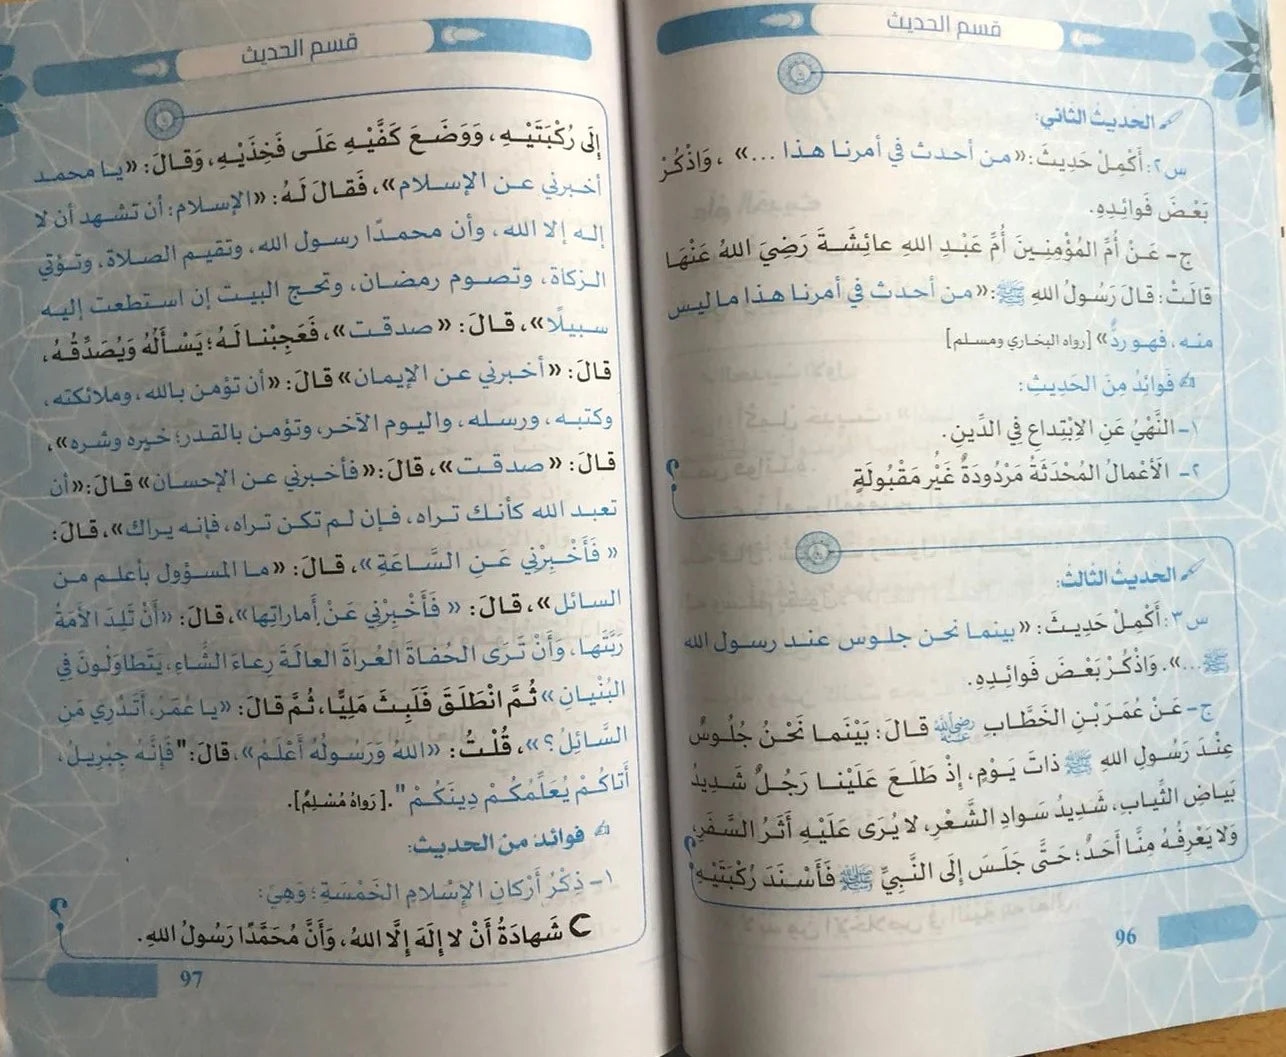 قسم الحديث
الحديثُ الثاني:
س٢: أَكْمِلْ حَدِيثَ: «من أحدث في أمرنا هذا ...» ، وَاذْكُرْ
بَعْضَ فَوائِدِهِ.
ج- عَنْ أُمِّ المُؤْمِنِينَ أُمِّ عَبْدِ اللهِ عائِشَةَ رَضِيَ اللهُ عَنْهَا
قالَتْ: قالَ رَسُولُ اللهِ ﷺ: «من أحدث في أمرنا هذا ما ليس
منه، فهو ردٌّ» [رواه البخاري ومسلم]
فَوائِدُ مِنَ الحَدِيثِ:
١- النَّهْيُ عَنِ الاِبْتِداعِ فِي الدِّينِ.
٢- الأَعْمالُ المُحْدَثَةُ مَرْدُودَةٌ غَيْرُ مَقْبُولَةٍ
الحديثُ الثالث:
س٣: أَكْمِلْ حَدِيثَ: «بينما نحن جلوس عند رسول الله
ﷺ ...». وَاذْكُرْ بَعْضَ فَوائِدِهِ.
ج- عَنْ عُمَرَ بْنِ الخَطَّابِ رضي الله عنه قالَ: بَيْنَما نَحْنُ جُلُوسٌ
عِنْدَ رَسُولِ اللهِ ﷺ ذاتَ يَوْمٍ، إِذْ طَلَعَ عَلَيْنا رَجُلٌ شَدِيدُ
بَياضِ الثِّيابِ، شَدِيدُ سَوادِ الشَّعْرِ، لا يُرَى عَلَيْهِ أَثَرُ السَّفَرِ،
وَلا يَعْرِفُهُ مِنَّا أَحَدٌ؛ حَتَّى جَلَسَ إِلَى النَّبِيِّ ﷺ فَأَسْنَدَ رُكْبَتَيْهِ
96
قسم الحديث
إِلَى رُكْبَتَيْهِ، وَوَضَعَ كَفَّيْهِ عَلَى فَخِذَيْهِ، وَقالَ: «يا محمد
أخبرني عن الإسلام»، فَقالَ لَهُ: «الإسلام: أن تشهد أن لا
إله إلا الله، وأن محمدًا رسول الله، وتقيم الصلاة، وتؤتي
الزكاة، وتصوم رمضان، وتحج البيت إن استطعت إليه
سبيلًا»، قالَ: «صدقت»، فَعَجِبْنا لَهُ؛ يَسْأَلُهُ وَيُصَدِّقُهُ،
قالَ: «أخبرني عن الإيمان» قالَ: «أن تؤمن بالله، وملائكته،
وكتبه، ورسله، واليوم الآخر، وتؤمن بالقدر؛ خيره وشره»،
قالَ: «صدقت»، قالَ: «فأخبرني عن الإحسان» قالَ: «أن
تعبد الله كأنك تراه، فإن لم تكن تراه، فإنه يراك»، قالَ:
«فَأَخْبِرْنِي عَنِ السَّاعَةِ»، قالَ: «ما المسؤول بأعلم من
السائل»، قالَ: «فَأَخْبِرْنِي عَنْ أَماراتِها»، قالَ: «أَنْ تَلِدَ الأَمَةُ
رَبَّتَها، وَأَنْ تَرَى الحُفاةَ العُراةَ العالَةَ رِعاءَ الشَّاءِ، يَتَطاوَلُونَ فِي
البُنْيانِ» ثُمَّ انْطَلَقَ فَلَبِثَ مَلِيًّا، ثُمَّ قالَ: «يا عُمَرُ، أَتَدْرِي مَنِ
السَّائِلُ؟»، قُلْتُ: «اللهُ وَرَسُولُهُ أَعْلَمُ»، قالَ: "فَإِنَّهُ جِبْرِيلُ،
أَتاكُمْ يُعَلِّمُكُمْ دِينَكُمْ". [رَواهُ مُسْلِمٌ].
فوائد من الحديث:
١- ذِكْرُ أَرْكانِ الإِسْلامِ الخَمْسَةِ؛ وَهِيَ:
شَهادَةُ أَنْ لا إِلَهَ إِلَّا اللهُ، وَأَنَّ مُحَمَّدًا رَسُولُ اللهِ.
97